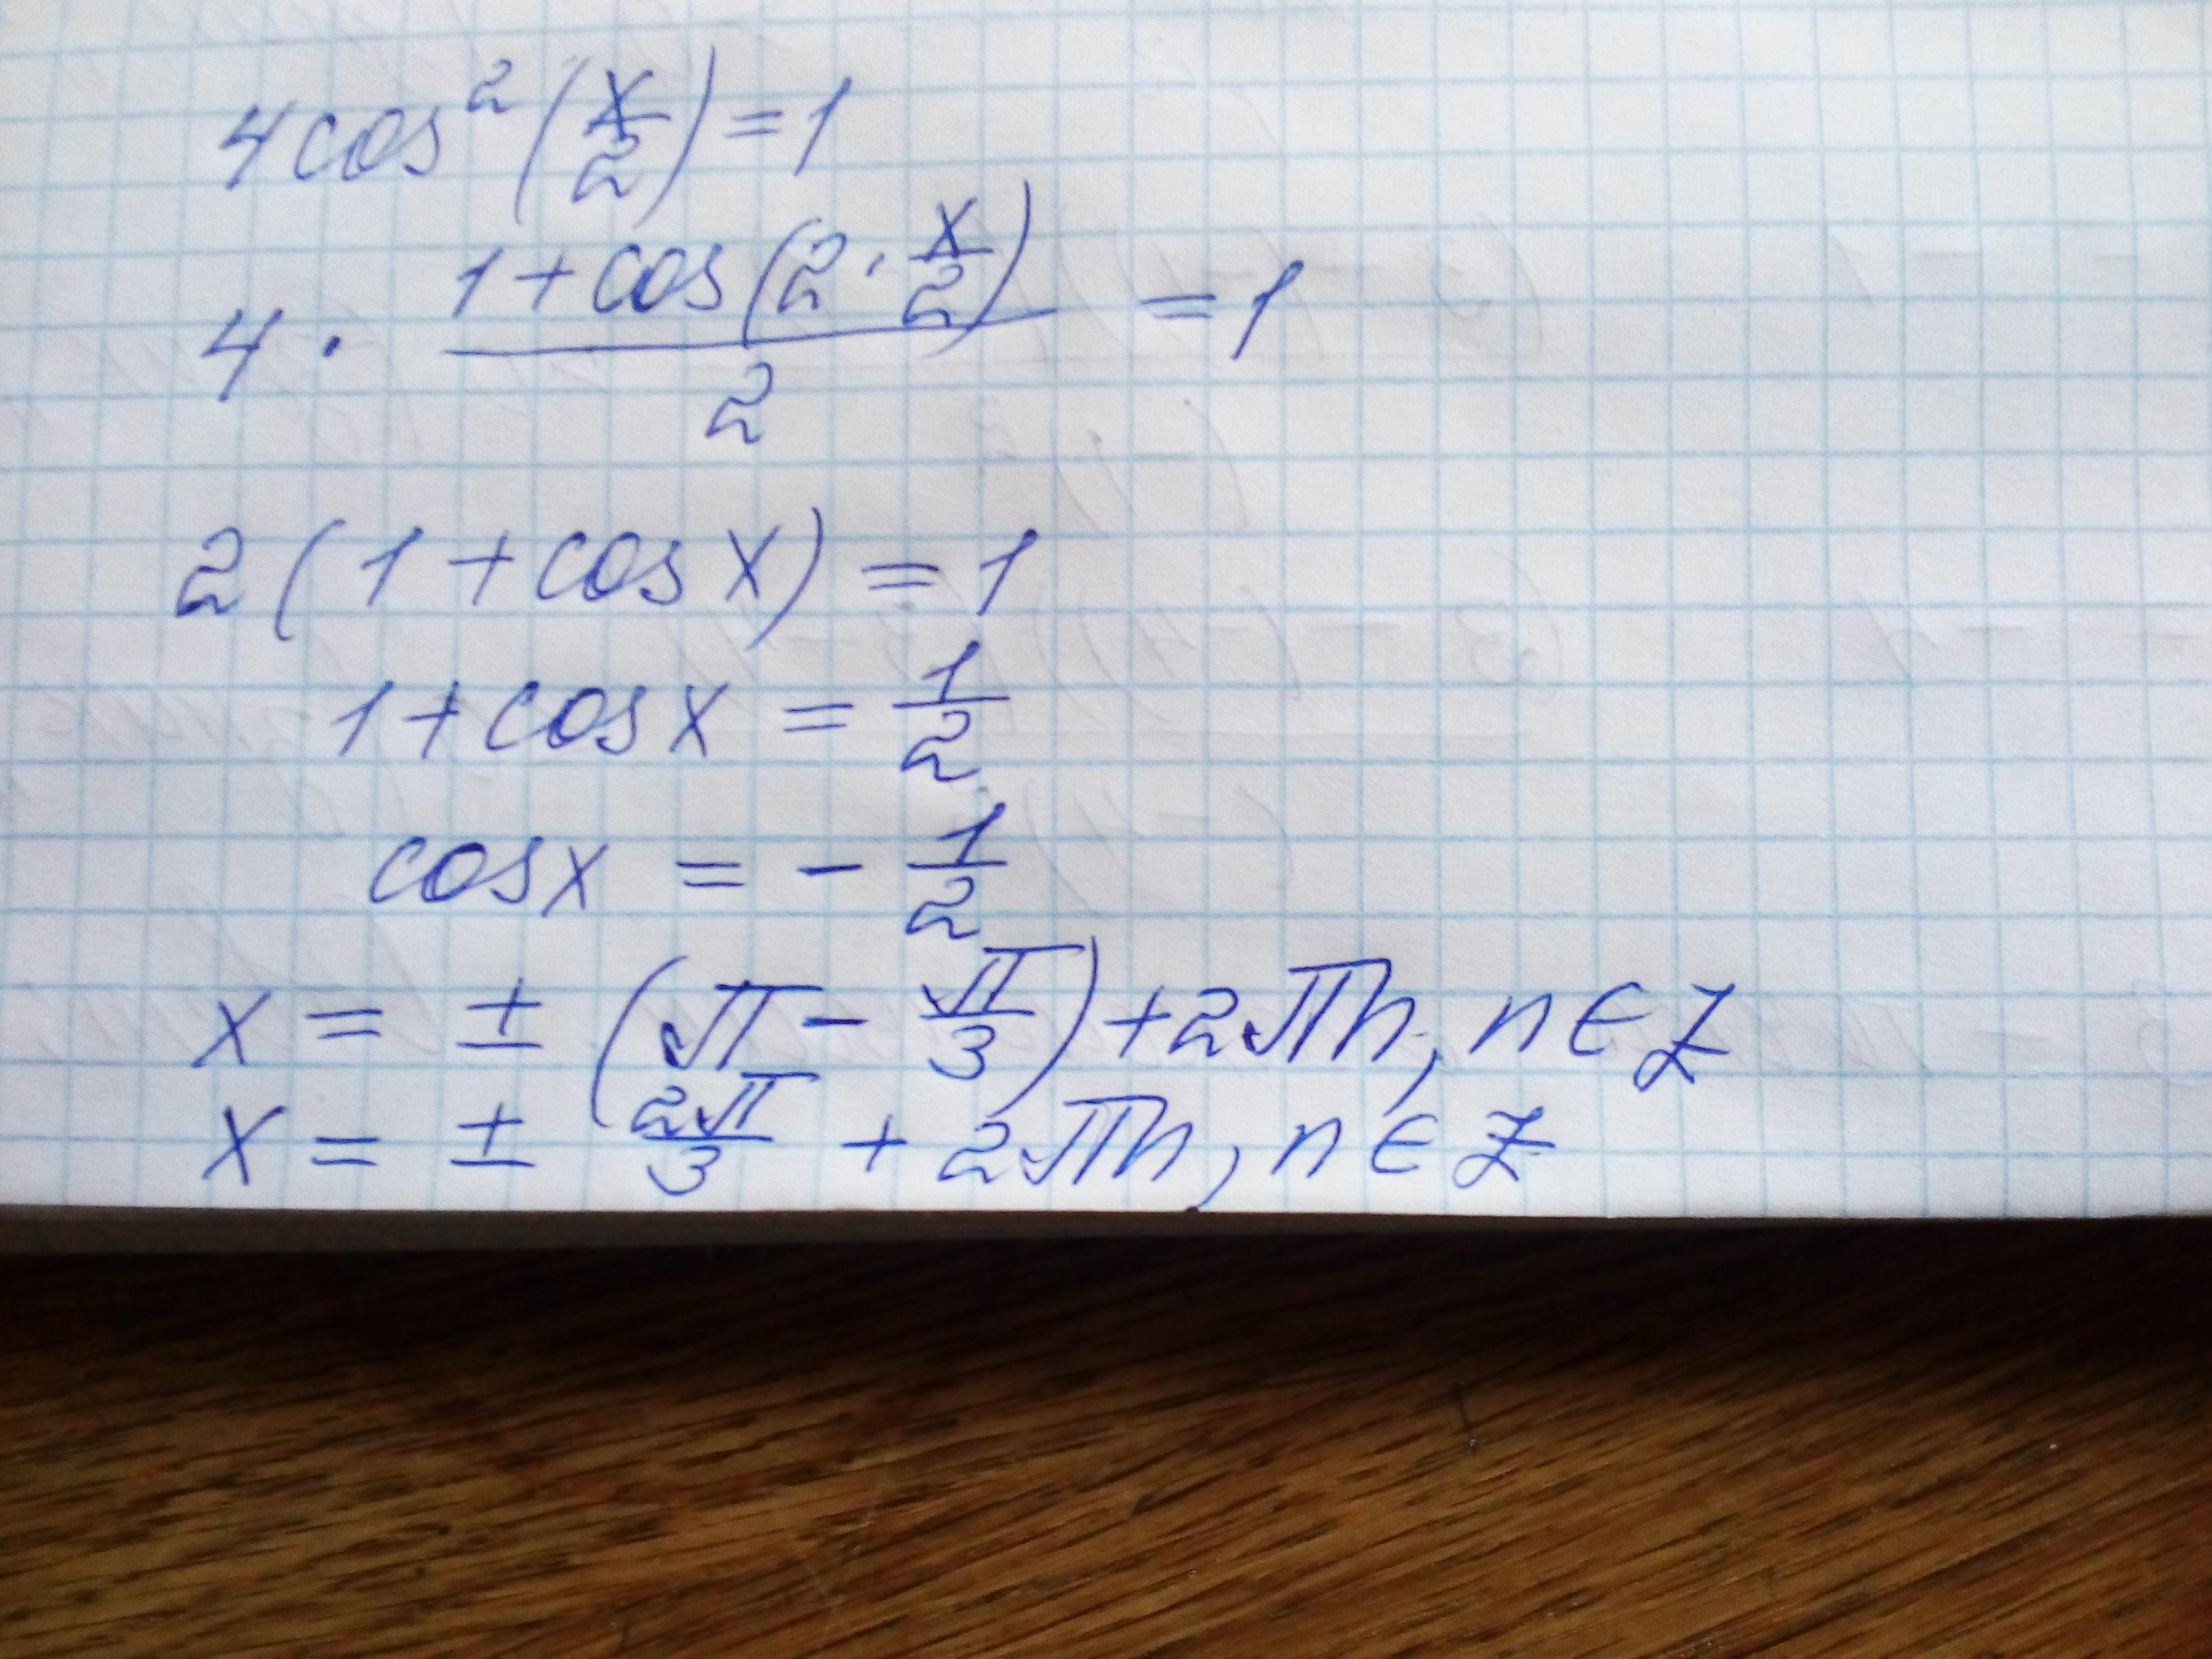 4cos²(x/2)=1
4·(1+cos(2·x/2))/2=1
2(1+cosx)=1
1+cosx=1/2
cosx=-1/2
x=±(π-π/3)+2πn, n∈Z
x=±2π/3+2πn, n∈Z